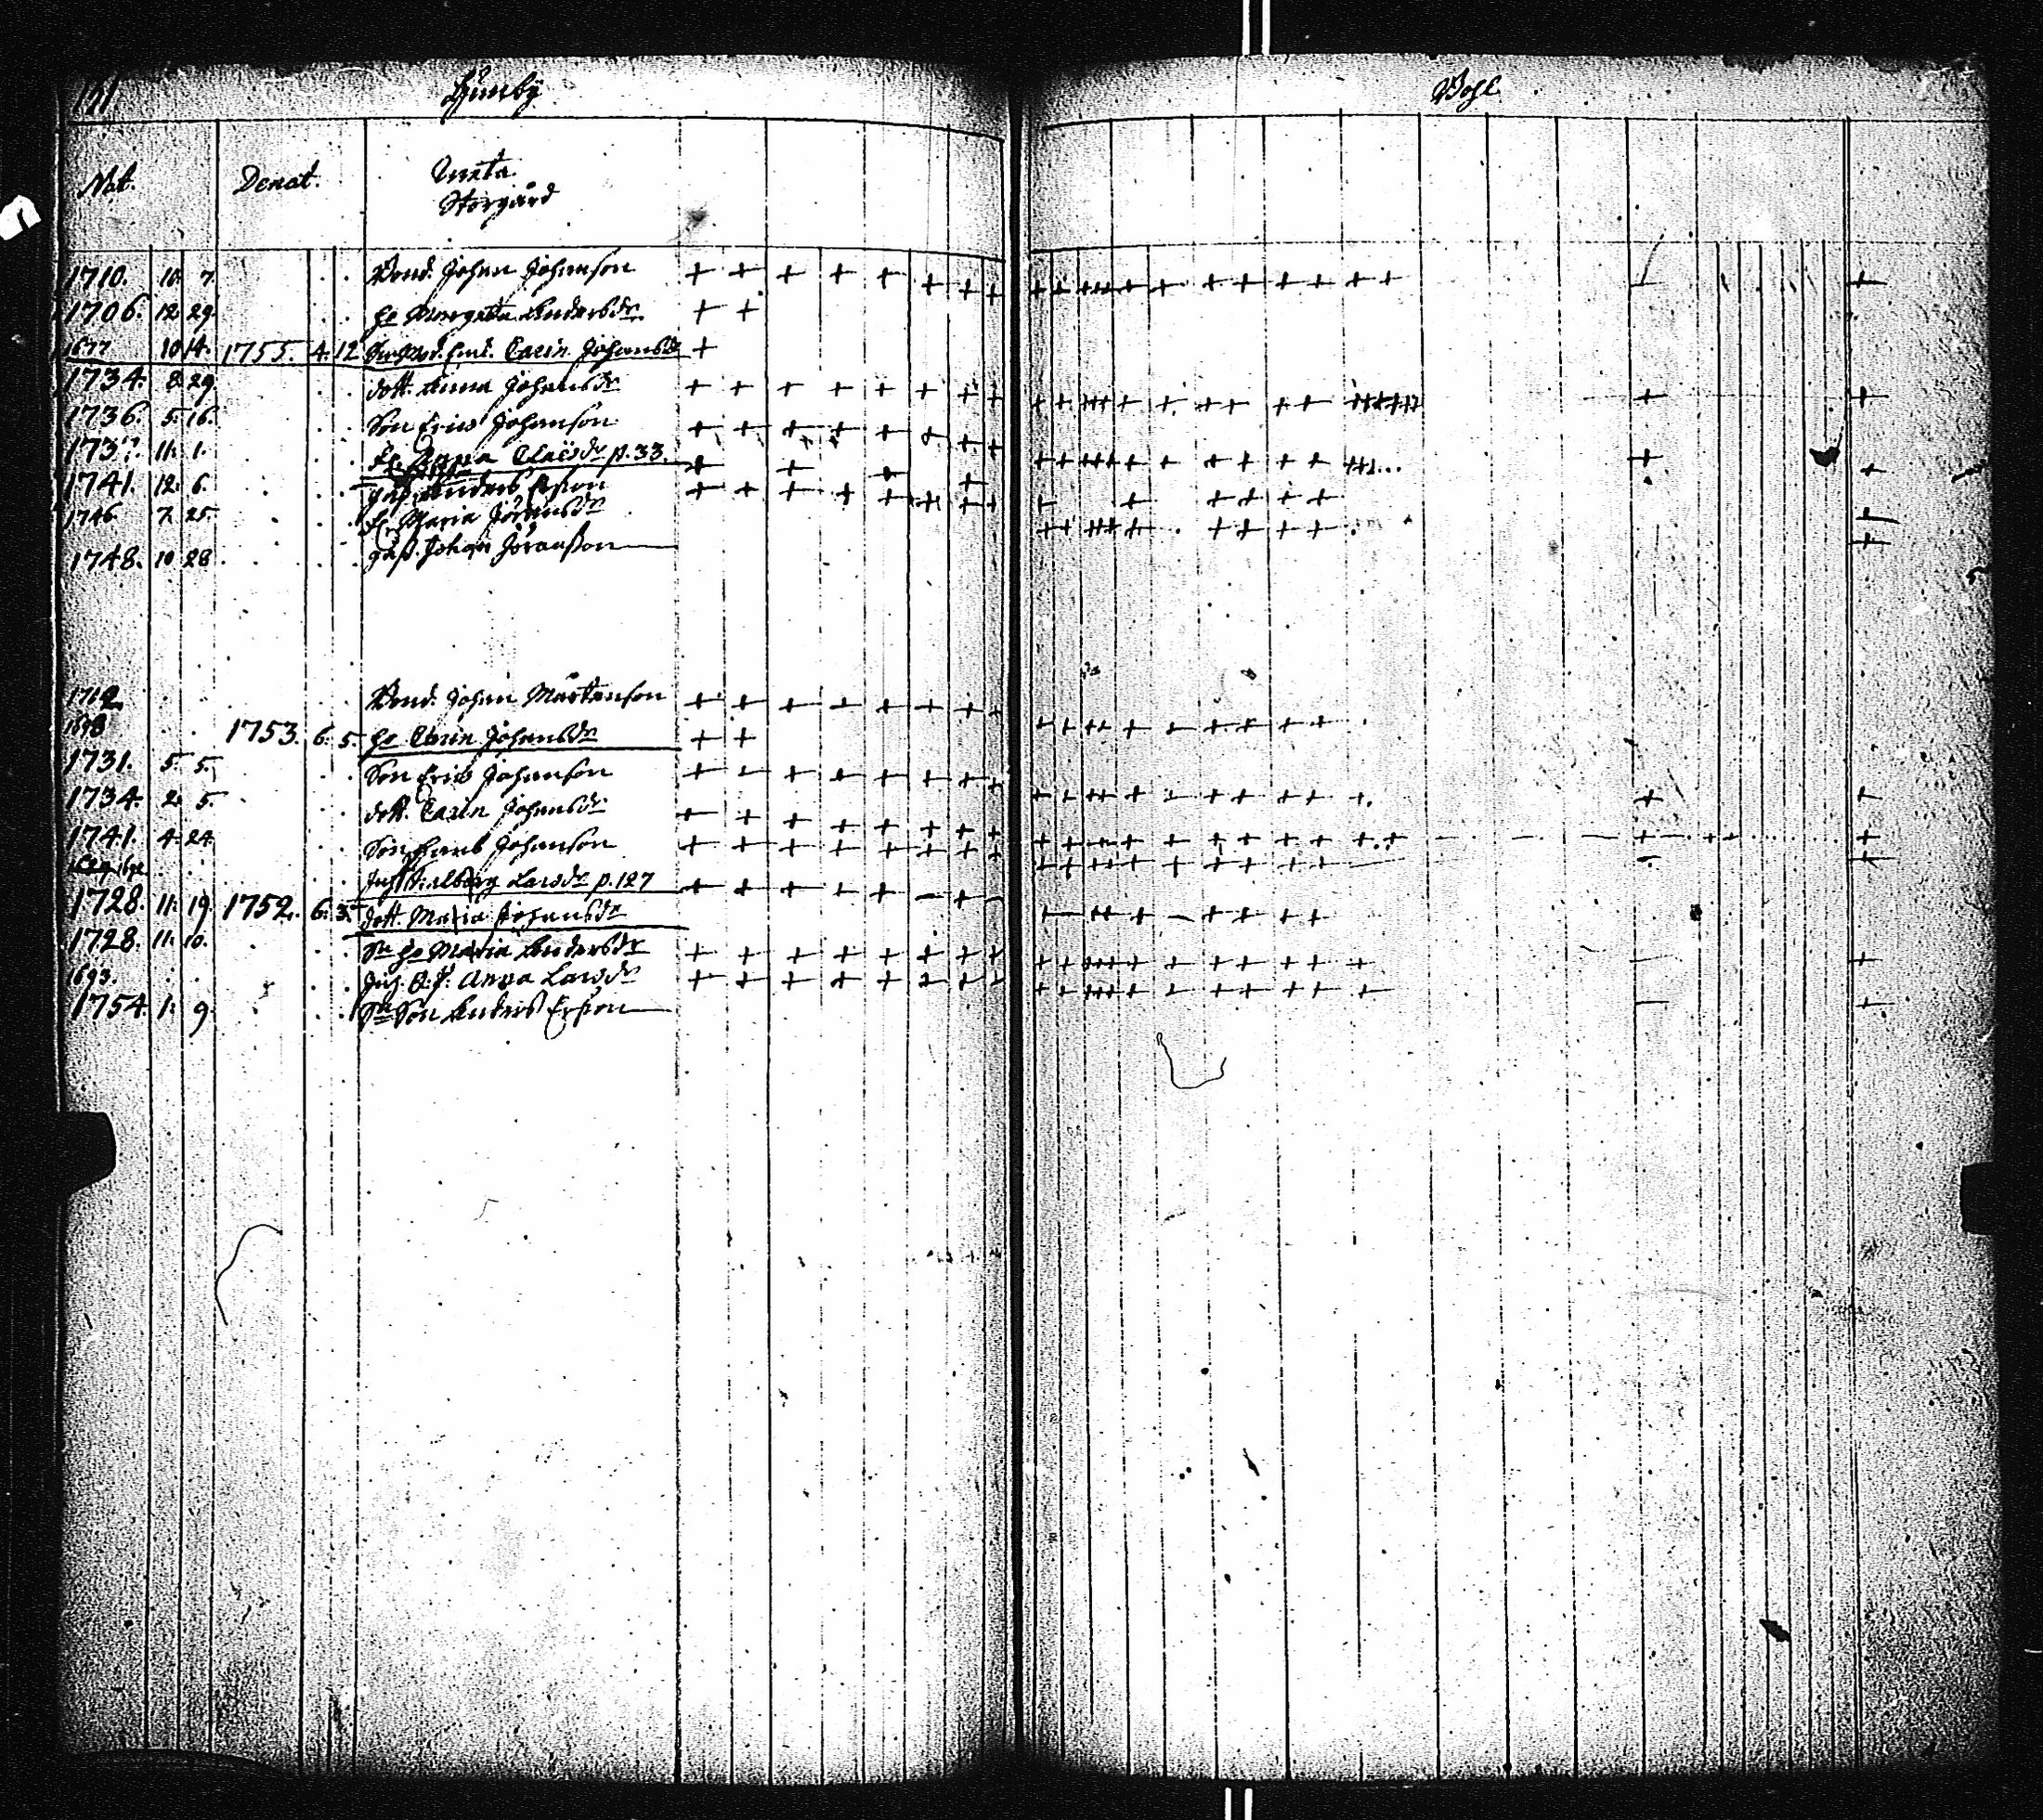 131
Bohl
Nat. Denat.
Storgård
1710. 10. 7. Bond. Johan Johanson
1706. 12. 29. Hu Margeta Andersdr
1677 10 14. 1755. 4. 12 Carin Johansdr
1734. 8. 29. dott. Anna Johansdr
1736. 5. 16. Son Eric Johanson
11. 1. Clasdr p. 33.
1741. 12. 6. Anders Ersson
1746. 7. 25. Maria Jöransdr
1748. 10 28 Johan Jöransson
1712. Bond. Johan Mårtenson
1698 1753. 6. 5. Hu Carin Johansdr
1731. 5. 5. Son Eric Johanson
1734. 2. 5. dott. Carin Johansdr
1741. 4. 24 Son Hans Johanson
Walborg Larsdr p. 127
1728. 11. 19. 1752. 6. 3. dott. Maria Johansdr
1728. 11. 10. Sn Hu Maria Andersdr
1693. Inh. Anna Larsdr
1754. 1. 9. Sn Son Anders Ersson